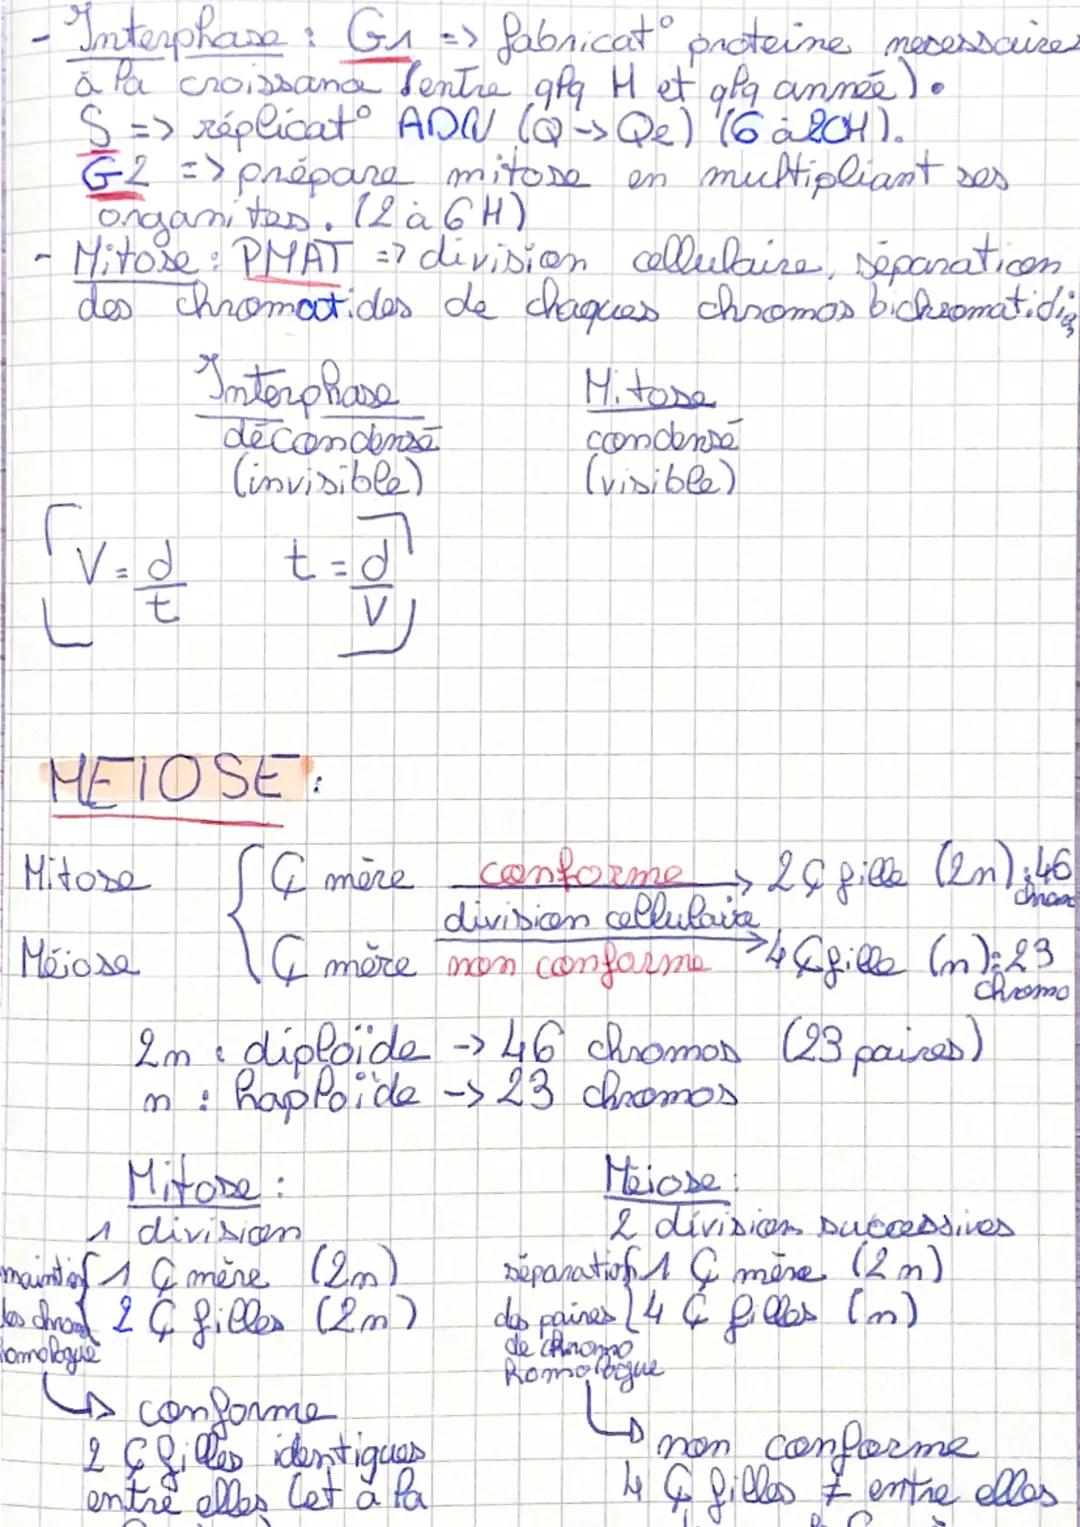 - Interphase : G1 => fabricat° proteine necessaires
à la croissance (entre qlq H et qlq année).
S => réplicat° ADN (Q -> Q2) (6 à 20H).
G2 => prépare mitose en multipliant ses
organites. (2 à 6H)
- Mitose : PMAT => division cellulaire, séparation
des chromatides de chaques chromos bichromatidiq
Interphase Mitose
décondensé condensé
(invisible) (visible)
V = d/t t = d/V
MEIOSE :
Mitose { Ç mère conforme -> 2 Ç fille (2n) : 46 chromo
division cellulaire
Méiose { Ç mère non conforme -> 4 Ç fille (n) : 23 chromo
2n : diploïde -> 46 chromos (23 paires)
n : haploïde -> 23 chromos
Mitose : Méiose :
1 division 2 division successives
maintien { 1 Ç mère (2n) séparation { 1 Ç mère (2n)
des chromo { 2 Ç filles (2n) des paires { 4 Ç filles (n)
homologue de chromo
homologue
-> conforme -> non conforme
2 Ç filles identiques 4 Ç filles ≠ entre elles
entre elles (et à la